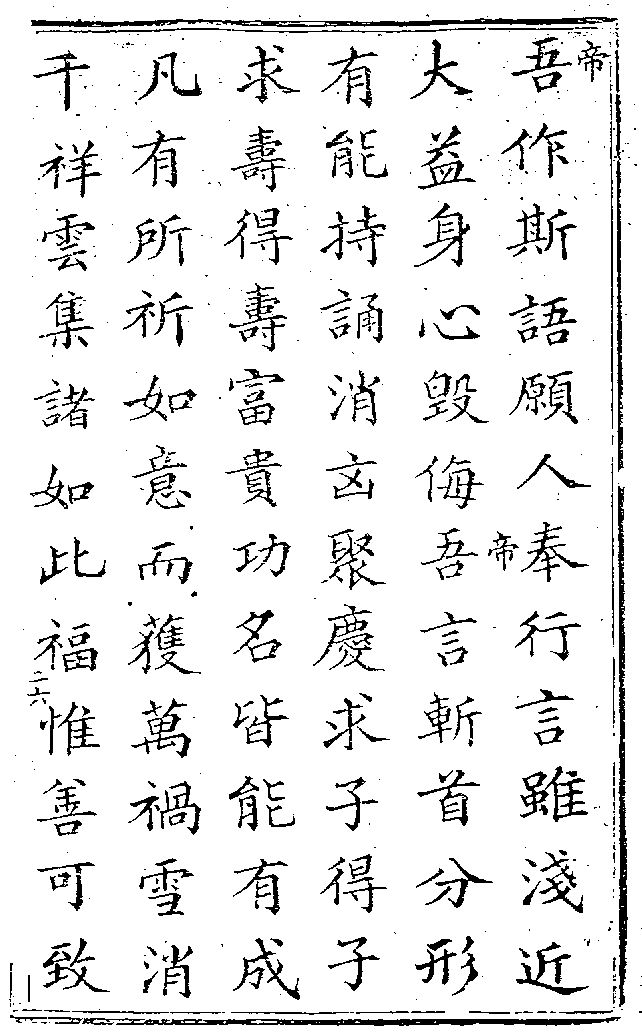 吾帝作斯語願人奉行言雖淺近
大益身心毀侮吾帝言斬首分形
有能持誦消㐫聚慶求子得子
求壽得壽富貴功名皆能有成
凡有所祈如意而獲萬禍雪消
千祥雲集諸如此福惟善可致
二六